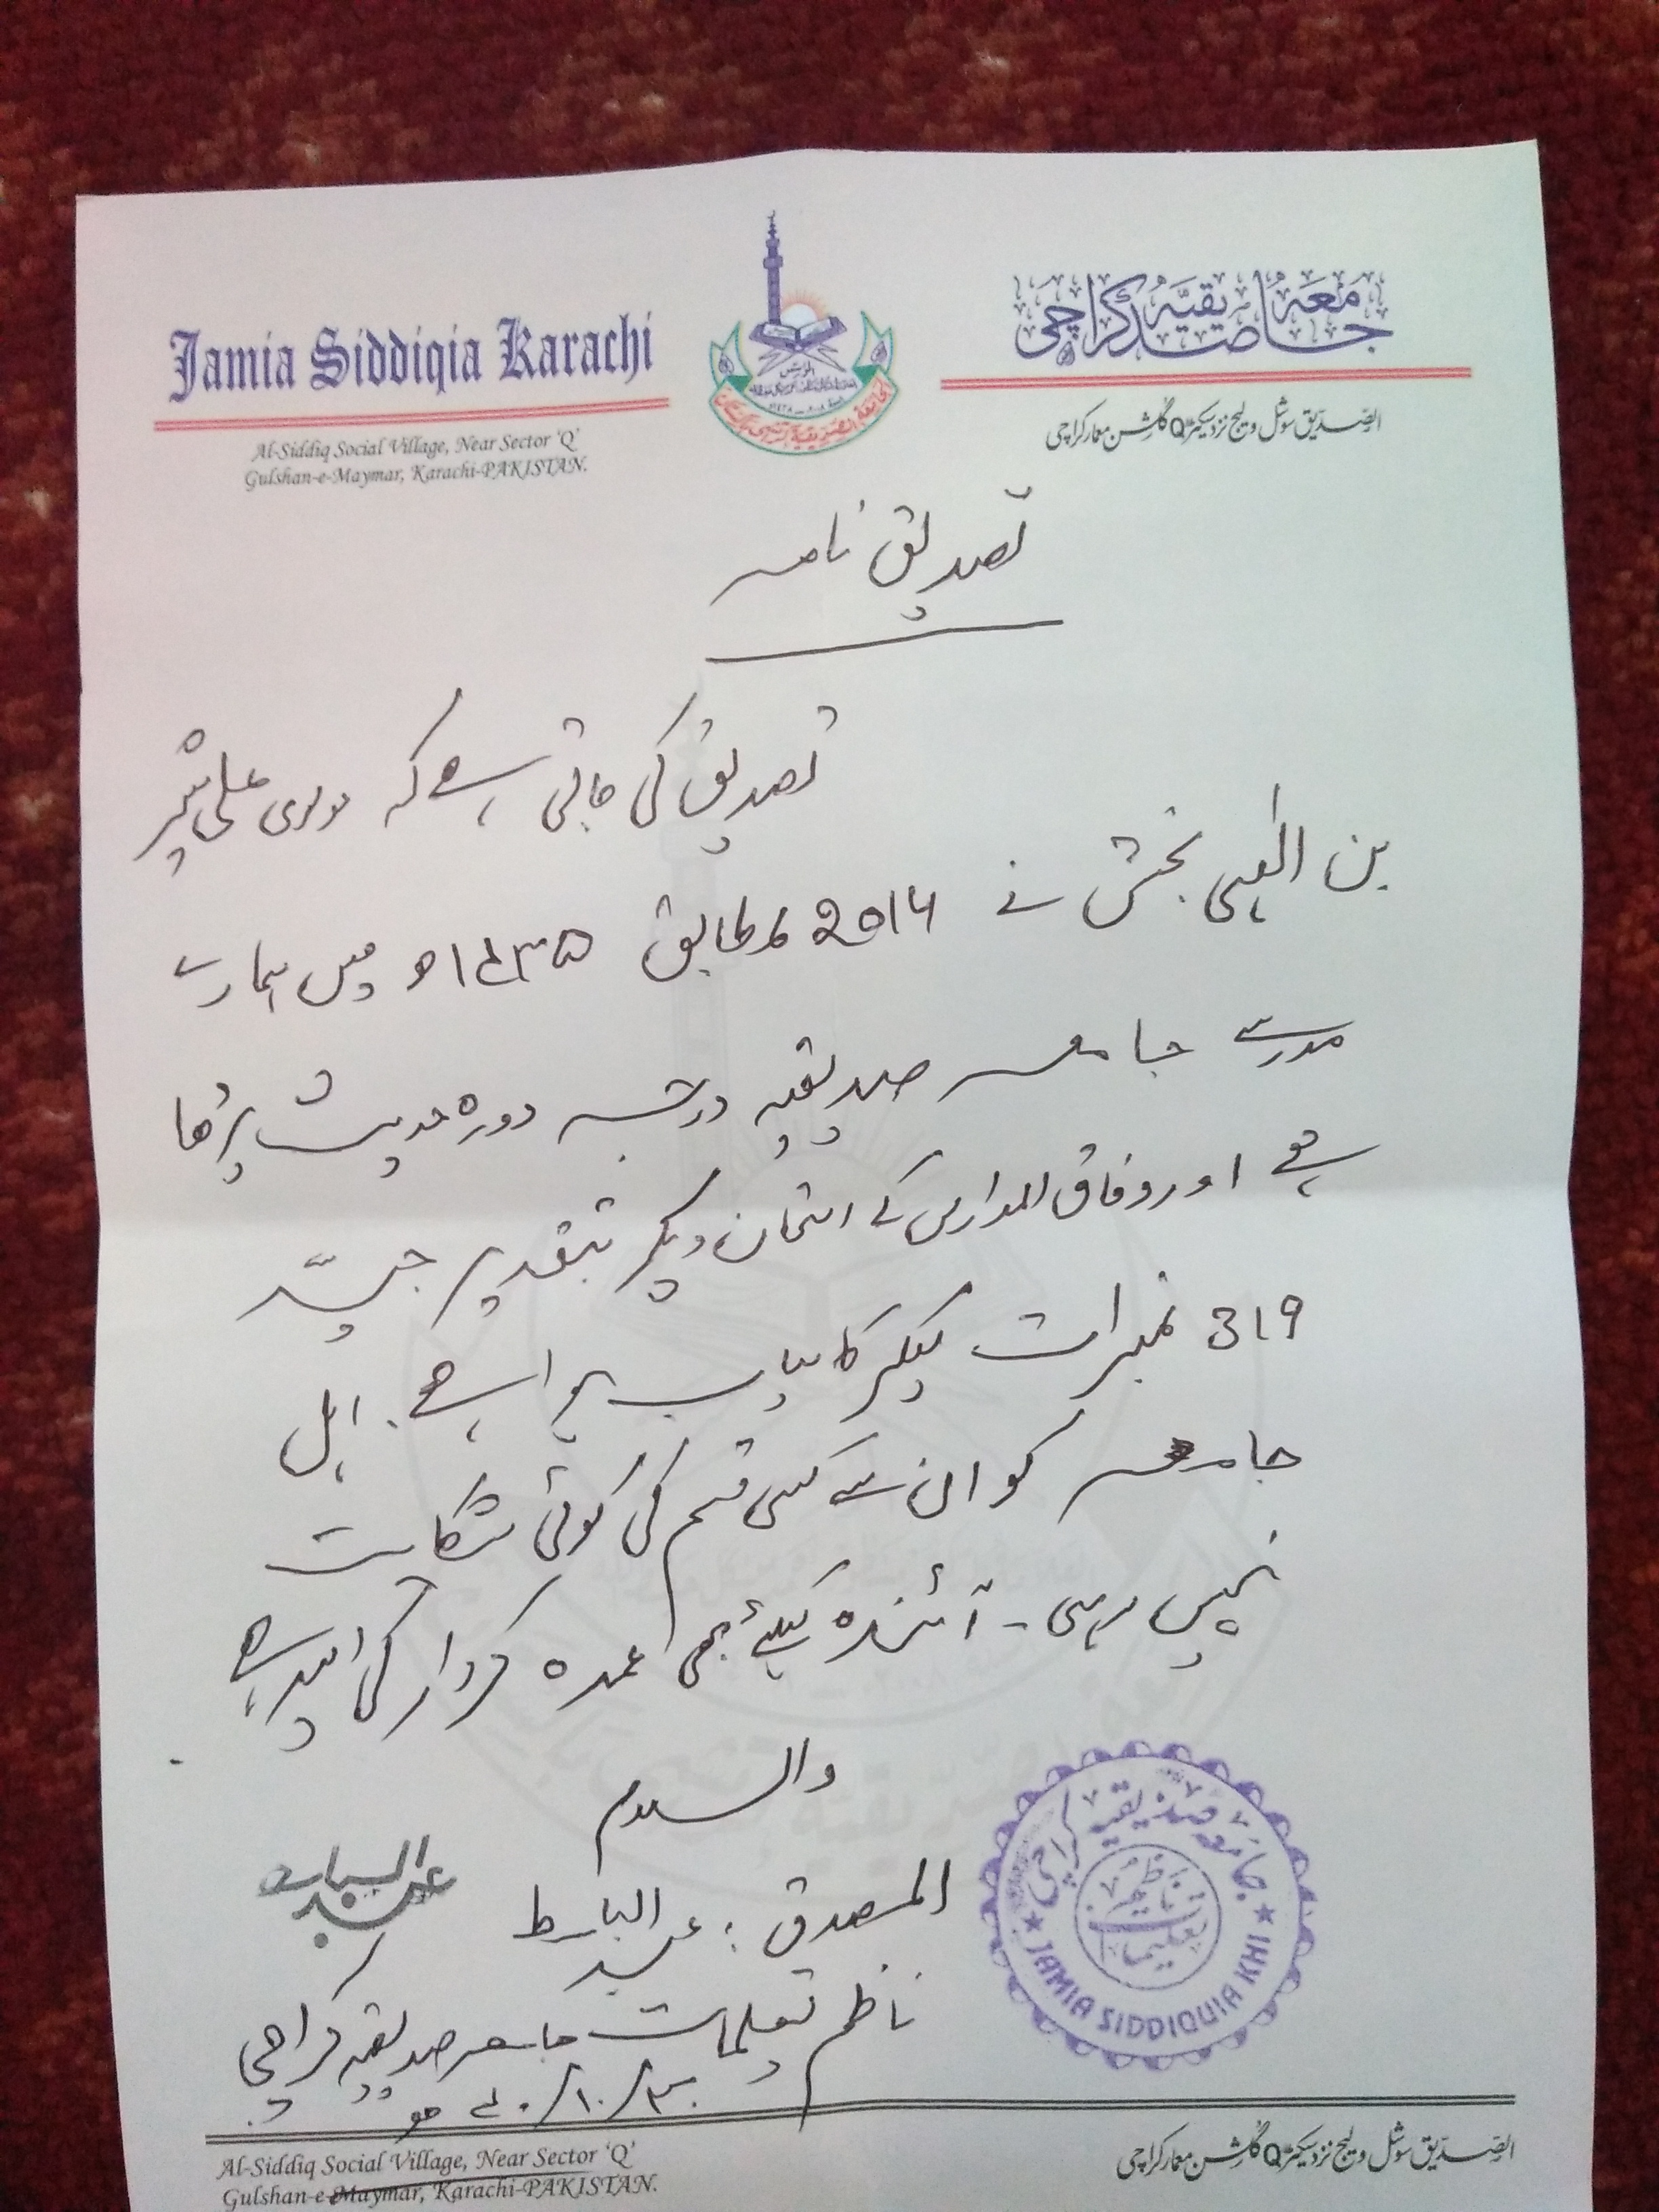 Jamia Siddiqia Karachi
جامعہ صدیقیہ کراچی
Al-Siddiq Social Village, Near Sector 'Q'
Gulshan-e-Maymar, Karachi-PAKISTAN.
الصدیق سوشل ولیج نزد سیکٹر Q گلشن معمار کراچی
تصدیق نامہ
تصدیق کی جاتی ہے کہ مولوی علی شیر
بن الٰہی بخش نے 2014 بمطابق ۱۴۳۵ھ میں ہمارے
مدرسے جامعہ صدیقیہ درجہ دورہ حدیث پڑھا
ہے اور وفاق المدارس کے امتحان دیکر بتقدیر جیّد
319 نمبرات لیکر کامیاب ہوا ہے. اہل
جامعہ کو ان سے کسی قسم کی کوئی شکایت
نہیں رہی - آئندہ کیلئے بھی عمدہ کردار کی امید ہے
والسلام
المصدق : عبد الباسط
عبد الباسط
ناظم تعلیمات جامعہ صدیقیہ کراچی
جامعہ صدیقیہ کراچی
ناظم تعلیمات
JAMIA SIDDIQUIA KHI
Al-Siddiq Social Village, Near Sector 'Q'
Gulshan-e-Maymar, Karachi-PAKISTAN.
الصدیق سوشل ولیج نزد سیکٹر Q گلشن معمار کراچی